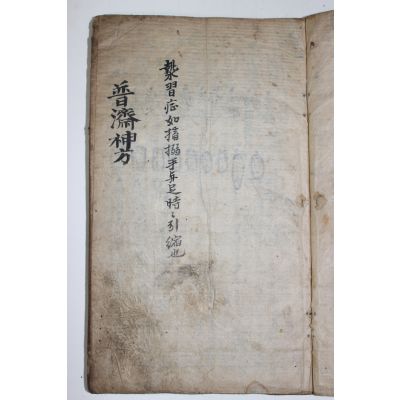 習症如搐搦手与足時々引縮也
普濟神方